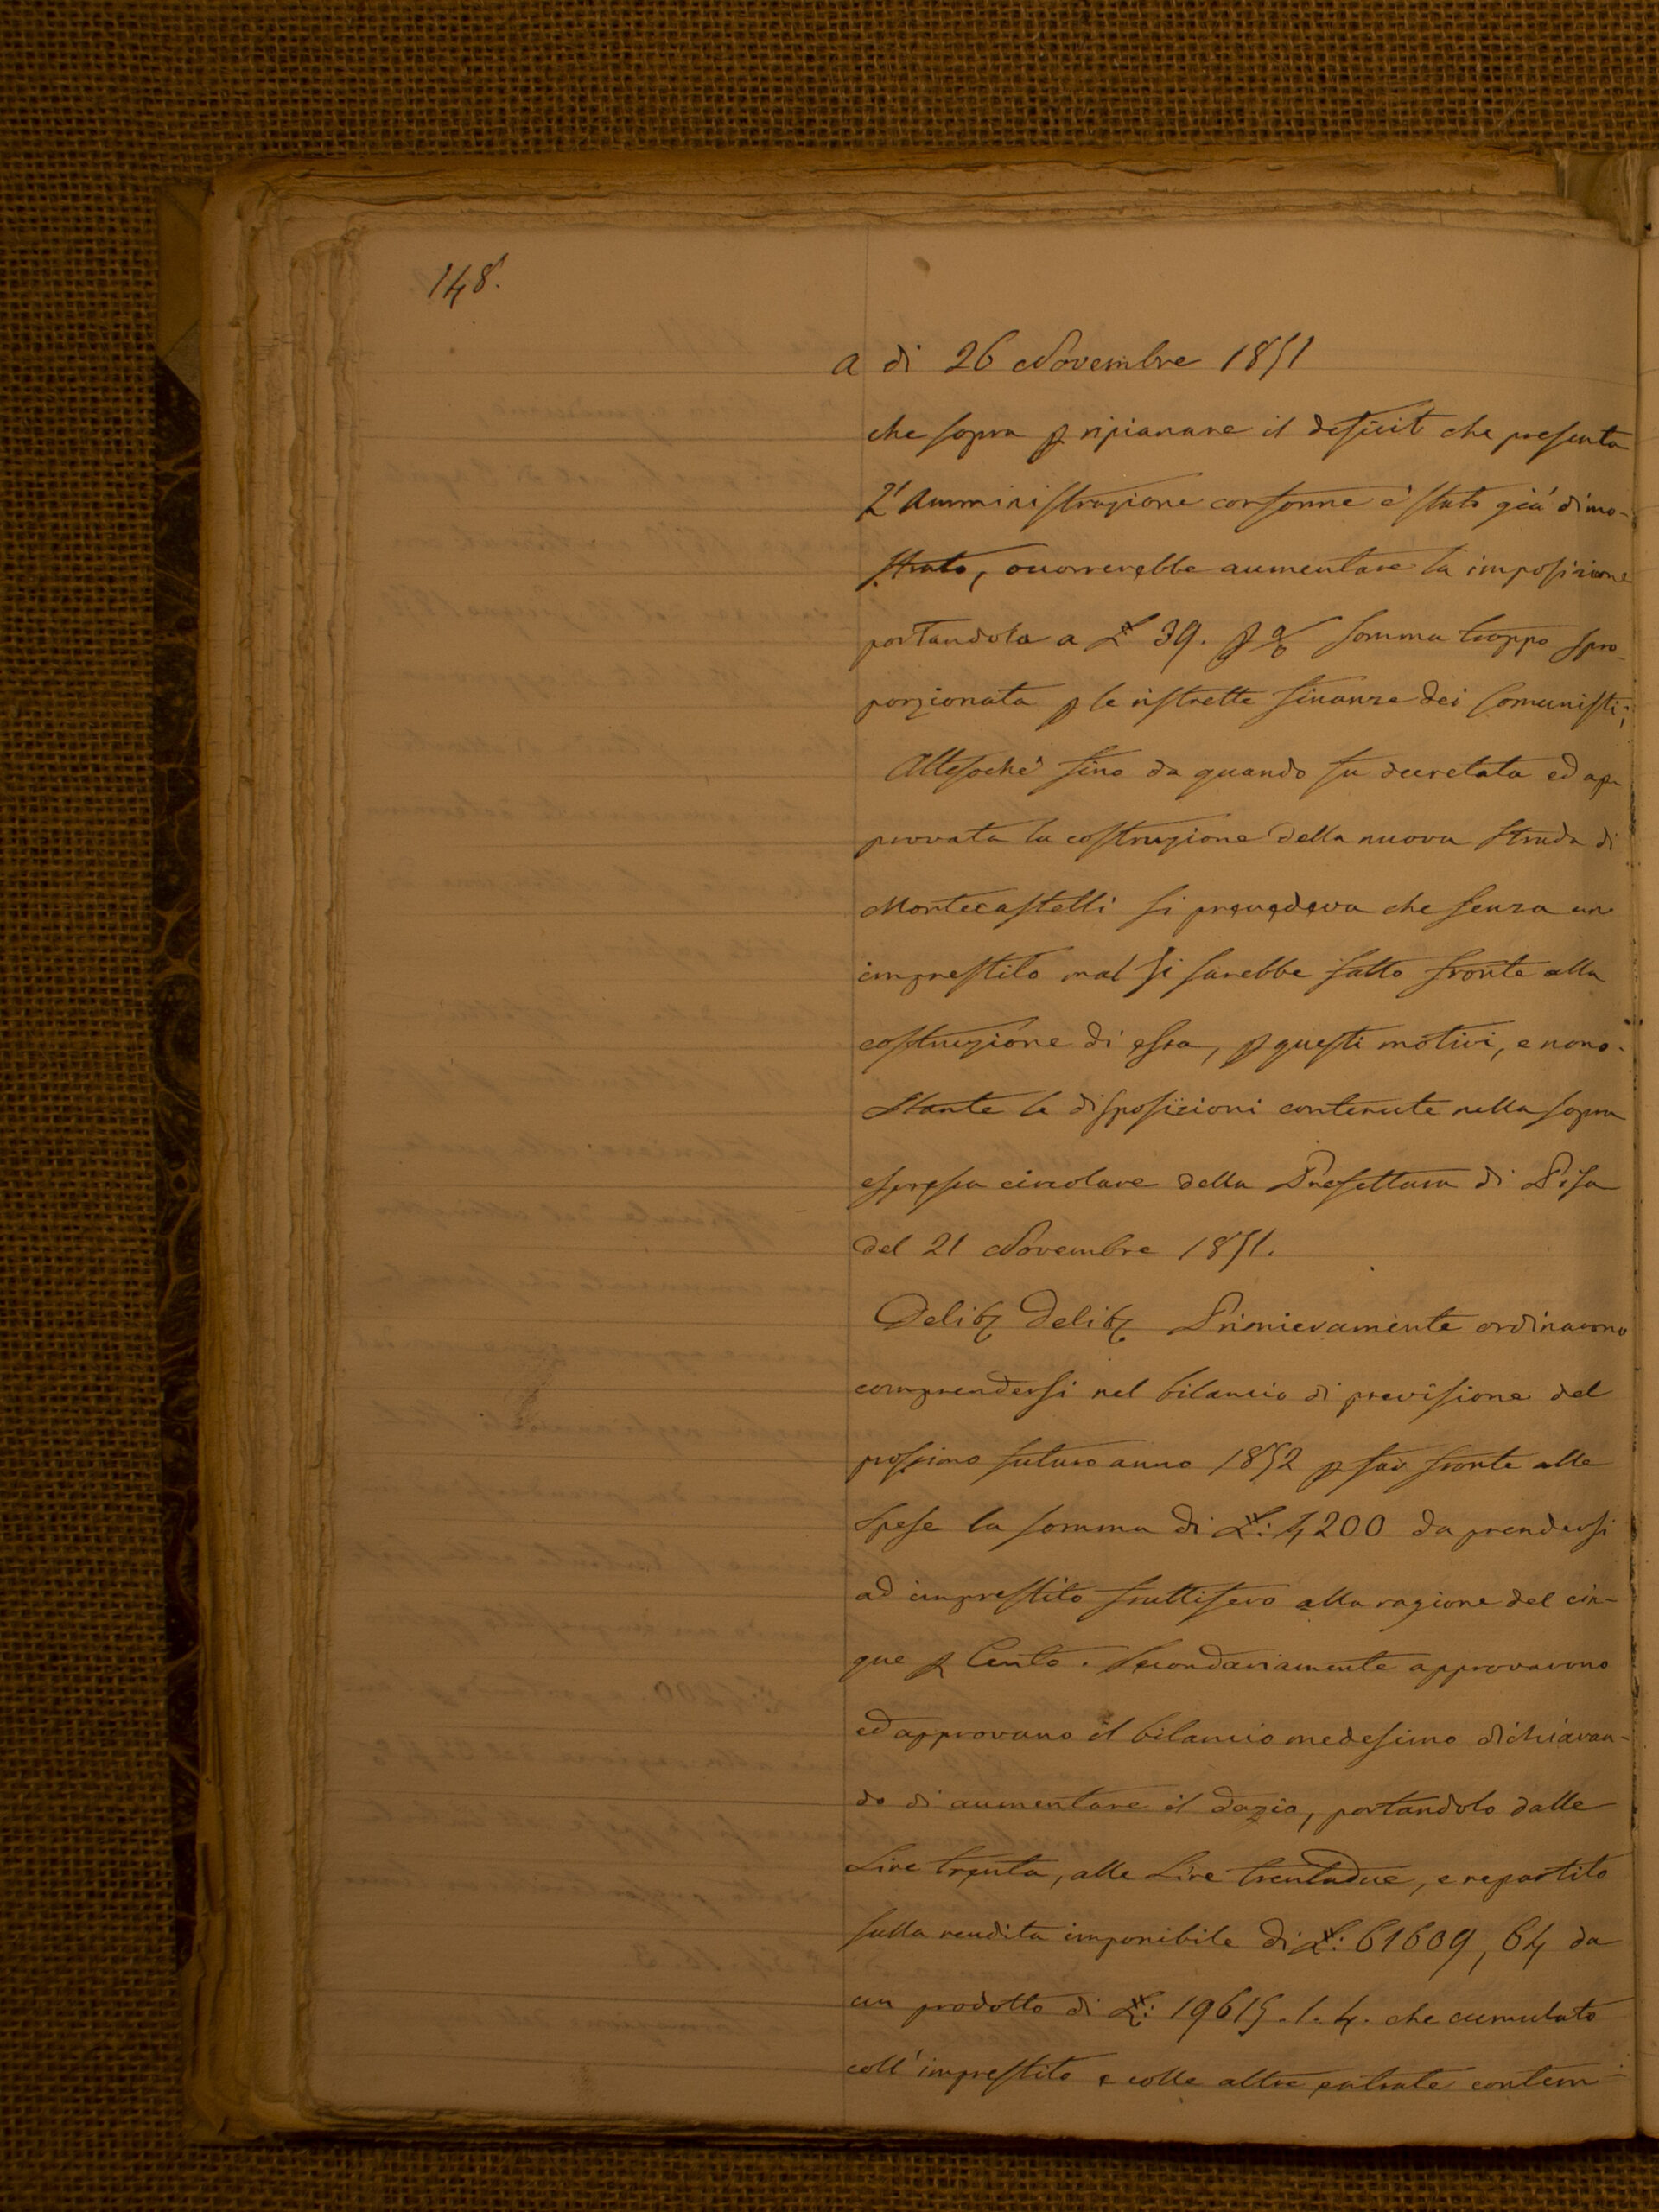 148.
a dì 26 Novembre 1851
che sopra p ripianare il deficit che presenta
L'Amministrazione conforme è stato già dimo-
strato, occorrerebbe aumentare la imposizione
portandola a L 39. p % somma troppo spro-
porzionata p le ristrette finanze dei Comunisti;
Attesochè fino da quando fu decretata ed ap-
provata la costruzione della nuova Strada di
Montecastelli si prevedeva che senza un
imprestito mal si sarebbe fatto fronte alla
costruzione di essa, p questi motivi, e nono-
stante le disposizioni contenute nella sopra
espressa circolare della Prefettura di Pisa
del 21 Novembre 1851.
Delib Delib Primievamente ordinarono
comprendersi nel bilancio di previsione del
prossimo futuro anno 1852 p far fronte alle
spese la somma di L: 4200 da prendersi
ad imprestito fruttifero alla ragione del cin-
que p Cento. Secondariamente approvarono
ed approvano il bilancio medesimo dichiaran-
do di aumentare il dazio, portandolo dalle
Lire trenta, alle Lire trentadue, e repartito
sulla rendita imponibile di L: 61609, 64 da
un prodotto di L: 19615.1.4. che cumulato
coll'imprestito e colle altre entrate contem-